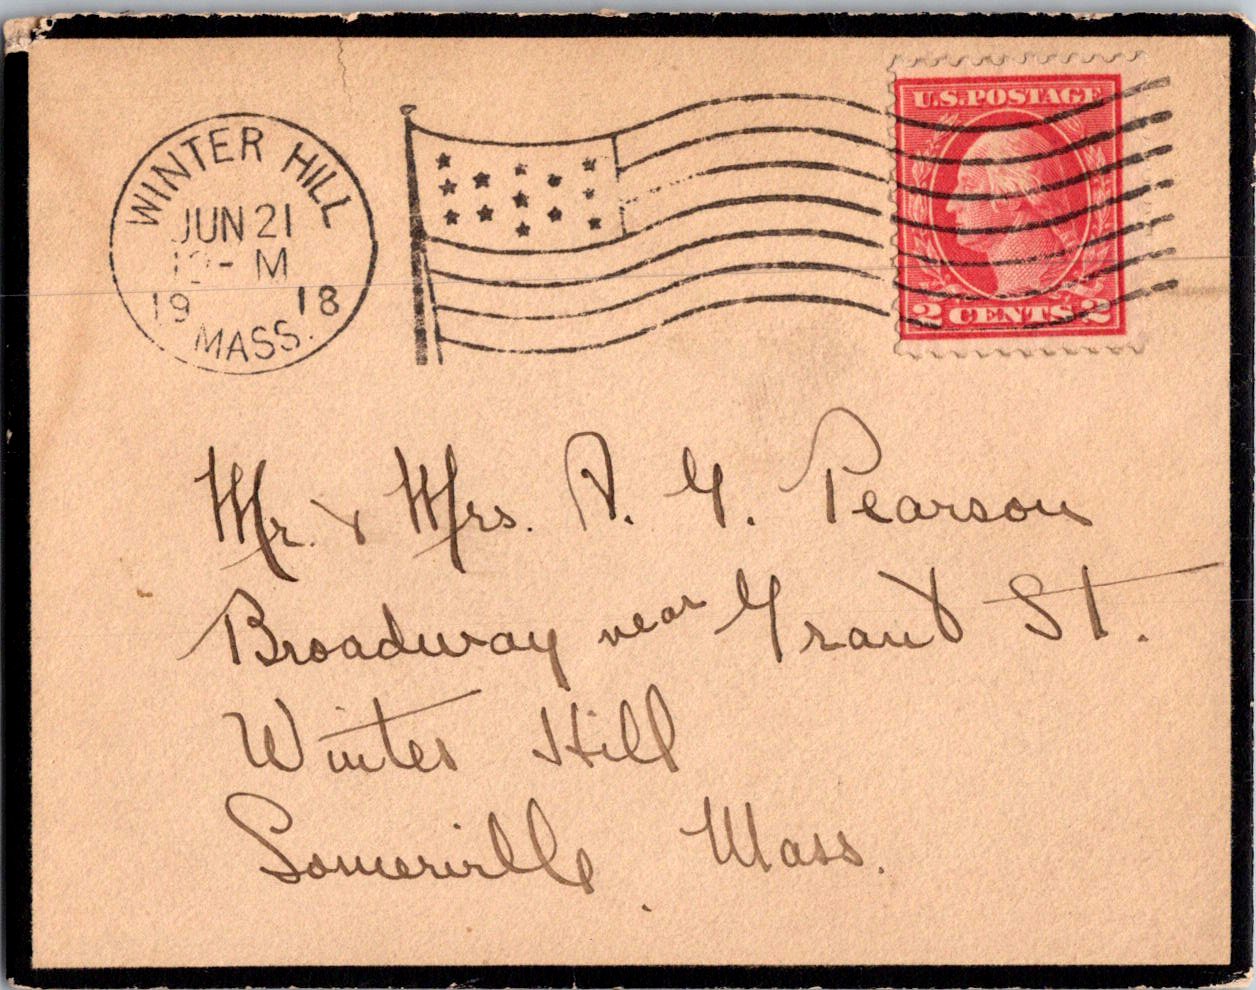 WINTER HILL
JUN 21
12- M
19 18
MASS.
U.S. POSTAGE
2 CENTS 2
Mr. & Mrs. A. G. Pearson
Broadway near Grant St.
Winter Hill
Somerville, Mass.